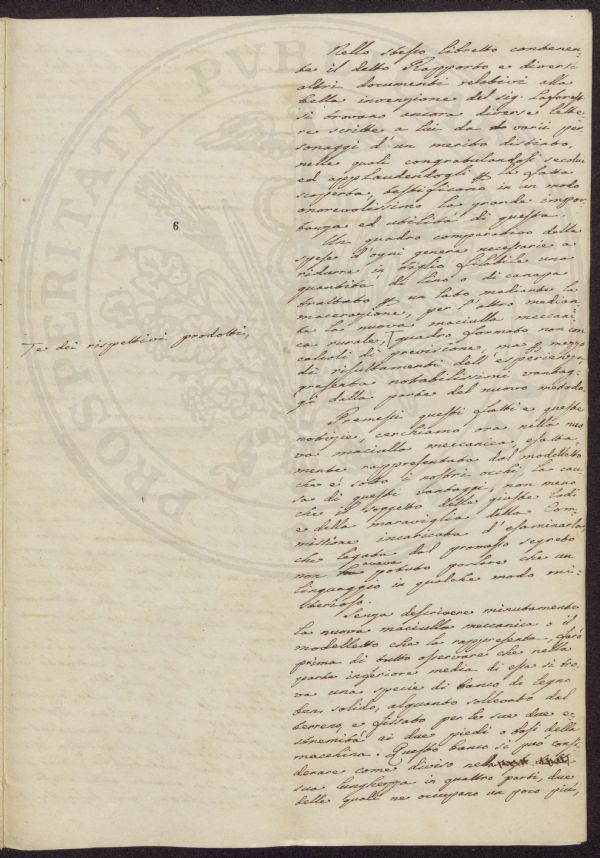 PROSPERITATI PVBL
6
Te dei rispettivi prodotti,
Nello stesso libretto contenen-
te il detto Rapporto e diversi
altri documenti relativi alla
bella invenzione del sig. Laforest
si trovano ancora diverse lette-
re scritte a lui da varii per
sonaggi d'un merito distinto,
nelle quali congratulandosi secolui
ed applaudendogli p la fatta
scoperta, testificano in un modo
onorevolissimo la grande impor
tanza ed utilità di questa.
Un quadro comparativo delle
spese d'ogni genere necessarie a
ridurre in tiglio filabile una
quantità di lino o di canapa
trattato p un lato mediante la
macerazione, per l'altro median
te la nuova maciulla meccani
ca rurale, quadro formato non con
calcoli di previsione, ma p mezzo
di risultamenti dell'esperienza,
presenta notabilissimi vantag-
gi dalla parte del nuovo metodo.
Premessi questi fatti e queste
notizie, cerchiamo ora nella nuo
va maciulla meccanica, esatta-
mente rappresentata dal modelletto
che è sotto i nostri occhi la cau
sa di questi vantaggi, non meno
che il soggetto delle giuste lodi
e della maraviglia della Com-
missione incaricata d'esaminarla
che legata dal promesso segreto
non aveva potuto parlare che un
linguaggio in qualche modo mi-
sterioso.
Senza descrivere minutamente
la nuova maciulla meccanica o il
modelletto che la rappresenta, farò
prima di tutto osservare che nella
parte inferiore media di essa si tro
va una specie di banco di legno
ben solido, alquanto sollevato dal
terreno, e fissato per le sue due e-
stremità ai due piedi o basi della
macchina. Questo banco si può consi
derare come diviso nella
sua lunghezza in quattro parti, due
delle quali ne occupano un poco più,